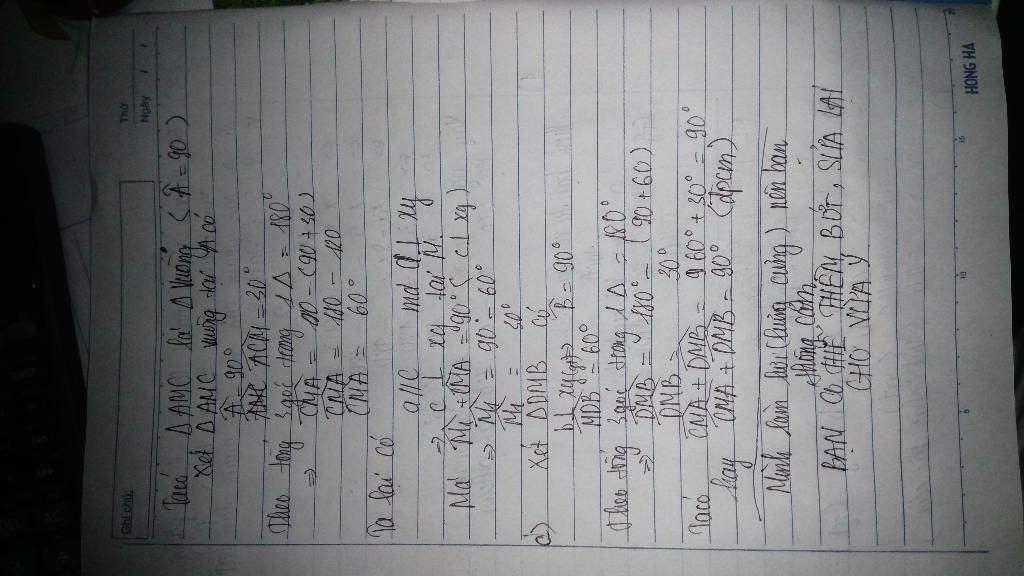 Ghi chú:
Thứ
Ngày / /
Ta có △ AMC là △ vuông ( Â = 90 )
Xét △ AMC vuông tại A có
 = 90°
ACM = 30°
Theo tổng 3 góc trong 1 △ = 180°
⇒ CMA = 180 - (90 + 30)
CMA = 180 - 120
CMA = 60°
Ta lại có a//c mà a ⊥ xy
⇒ c ⊥ xy tại M
Mà M₁ + CMA = 90° ( c ⊥ xy )
⇒ M₁ = 90° - 60°
M₁ = 30°
c) Xét △ DMB có
b ⊥ xy (gt) B = 90°
MDB = 60°
Theo tổng 3 góc trong 1 △ = 180°
⇒ DMB = 180° - (90 + 60)
DMB = 30°
Ta có CMA + DMB = 60° + 30° = 90°
hay CMA + DMB = 90° (đpcm)
Mình làm hơi lủng củng) nên bạn
thông cảm
BẠN CÓ THỂ THÊM BỚT, SỬA LẠI
CHO VỪA Ý
5 10 15 20
HONG HA